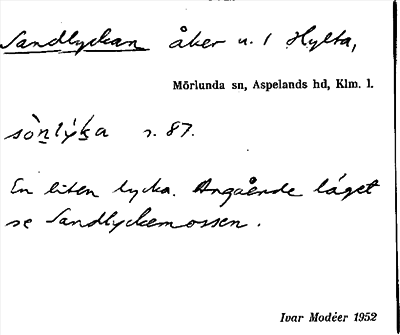 Sandlyckan åker u. 1 Hylta,
Mörlunda sn, Aspelands hd, Klm. l.
sòn̲lýk̬a s. 87.
En liten lycka. Angående läget
se Sandlyckemossen.
Ivar Modéer 1952